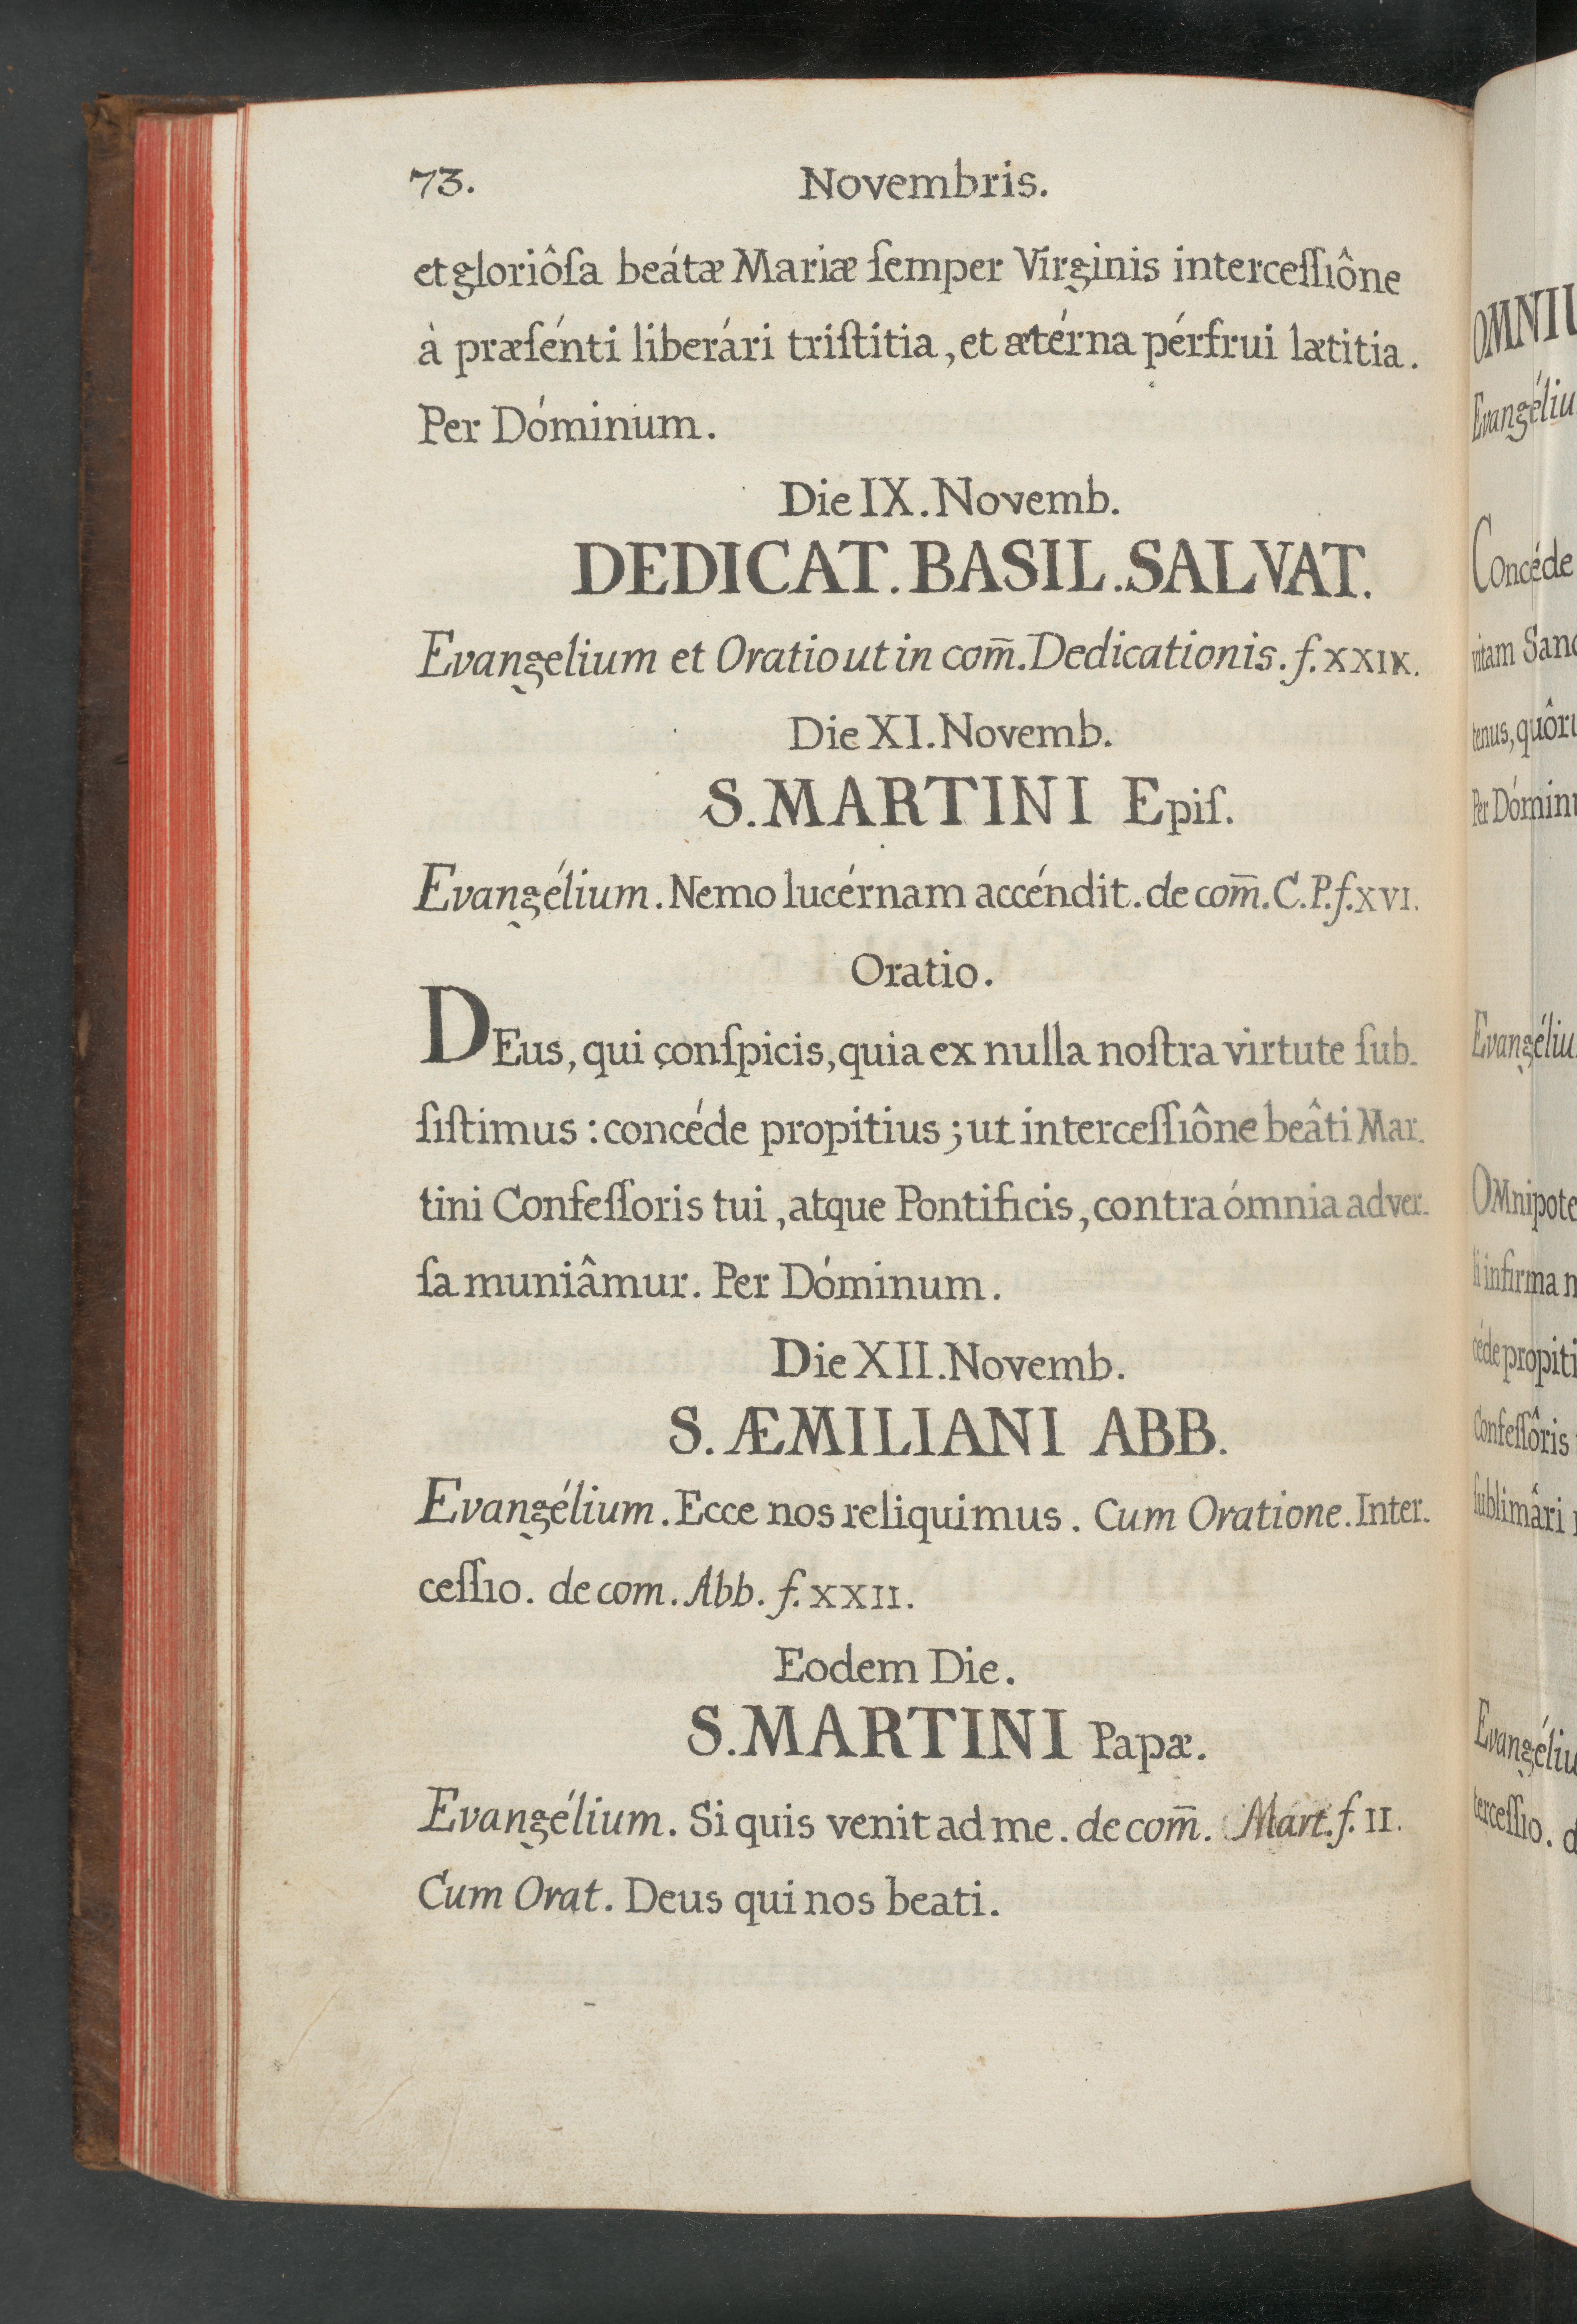 73. Novembris.
et gloriôſa beátæ Mariæ ſemper Virginis interceſſiône
à præſénti liberári triſtitia, et ætérna pérfrui lætitia.
Per Dóminum.
Die IX. Novemb.
DEDICAT. BASIL. SALVAT.
Evangelium et Oratio ut in com̄. Dedicationis. f. XXIX.
Die XI. Novemb.
S. MARTINI Epiſ.
Evangélium. Nemo lucérnam accéndit. de com̄. C. P. f. XVI.
Oratio.
DEus, qui conſpicis, quia ex nulla noſtra virtute ſub.
ſiſtimus : concéde propitius ; ut interceſſiône beâti Mar.
tini Confeſſoris tui, atque Pontificis, contra ómnia adver.
ſa muniâmur. Per Dóminum.
Die XII. Novemb.
S. ÆMILIANI ABB.
Evangélium. Ecce nos reliquimus. Cum Oratione. Inter.
ceſſio. de com. Abb. f. XXII.
Eodem Die.
S. MARTINI Papæ.
Evangélium. Si quis venit ad me. de com̄. Mart. f. II.
Cum Orat. Deus qui nos beati.
OMNIU
Evangéliu
Concéde
vitam Sanc
tenus, quôru
Per Dóminu
Evangéliu
OMnipote
li infirma n
céde propiti
Confeſſôris
ſublimâri
Evangéliu
terceſſio. d